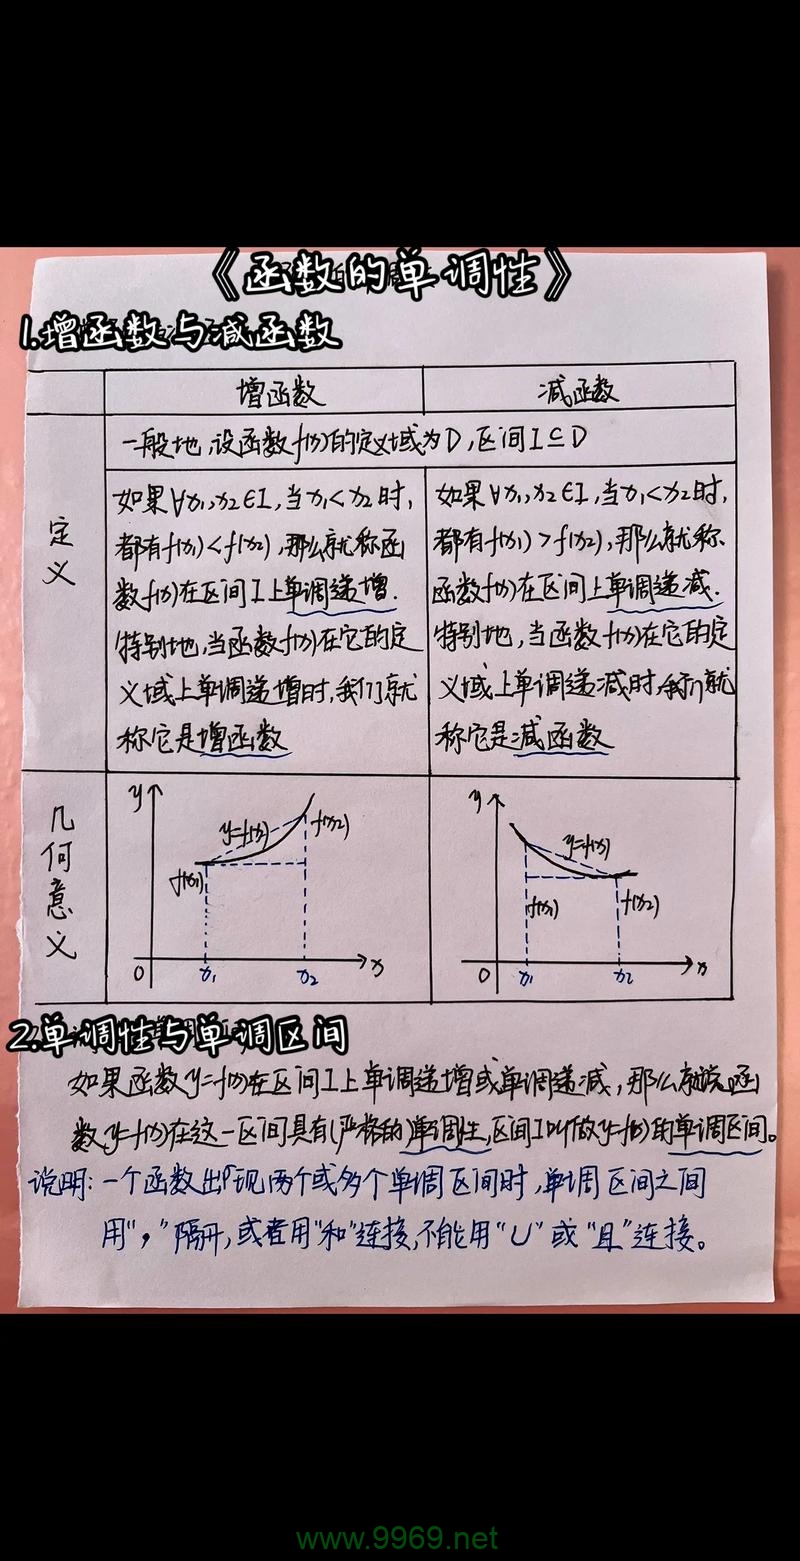 《函数的单调性》
1.增函数与减函数
增函数
减函数
一般地,设函数f(x)的定义域为D,区间I⊆D
定义
如果∀x₁,x₂∈I,当x₁<x₂时,
都有f(x₁)<f(x₂),那么就称函
数f(x)在区间I上单调递增.
特别地,当函数f(x)在它的定
义域上单调递增时,我们就
称它是增函数
如果∀x₁,x₂∈I,当x₁<x₂时,
都有f(x₁)>f(x₂),那么就称
函数f(x)在区间上单调递减.
特别地,当函数f(x)在它的定
义域上单调递减时,我们就
称它是减函数
几何意义
y
y=f(x)
f(x₂)
f(x₁)
0
x₁
x₂
x
y
y=f(x)
f(x₁)
f(x₂)
0
x₁
x₂
x
2.单调性与单调区间
如果函数y=f(x)在区间I上单调递增或单调递减,那么就说函
数y=f(x)在这一区间具有(严格的)单调性,区间I叫做y=f(x)的单调区间。
说明:一个函数出现两个或多个单调区间时,单调区间之间
用“,”隔开,或者用“和”连接,不能用“∪”或“且”连接。
www.9969.net